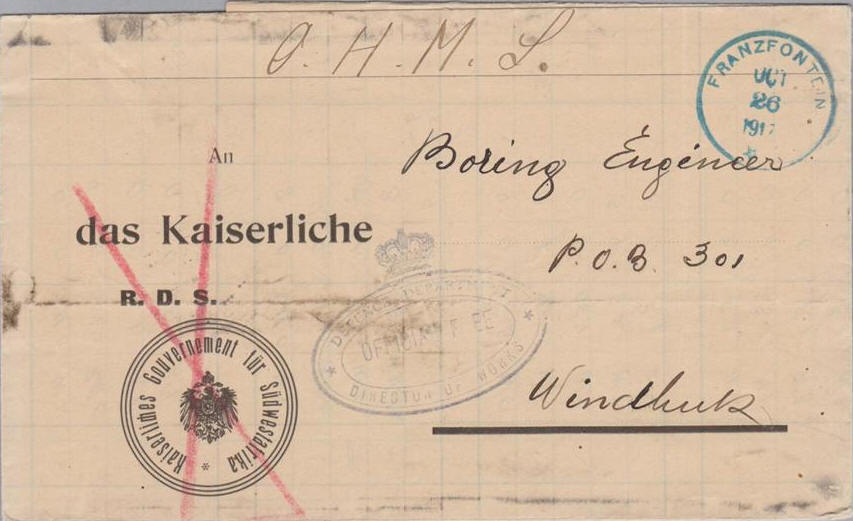 O. H. M. S.
FRANZFONTEIN
OCT
26
1917
An
Boring Engineer
das Kaiserliche
P.O.B. 301
R. D. S.
DEFENCE DEPARTMENT
OFFICIAL FREE
DIRECTOR OF WORKS
Kaiserliches Gouvernement für Südwestafrika
Windhuk